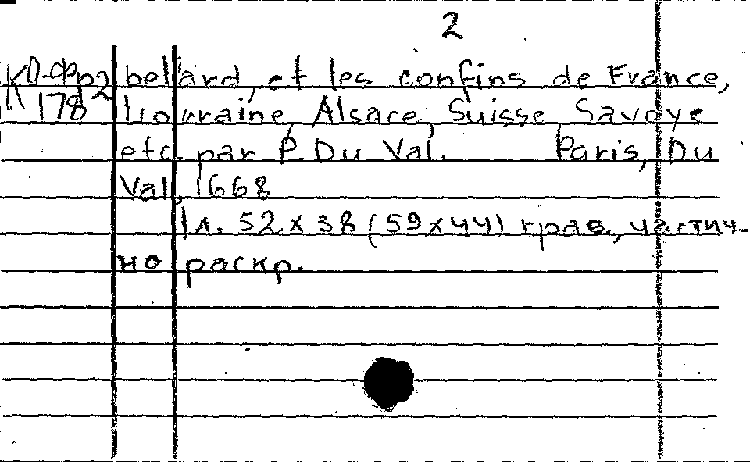 2
К0-Фр2 bellard, et les confins de France,
178 Lorraine, Alsace, Suisse, Savoye
etc. par P. Du Val. Paris, Du
Val, 1668
1 л. 52 x 38 (59 x 44) грав., частич-
но раскр.